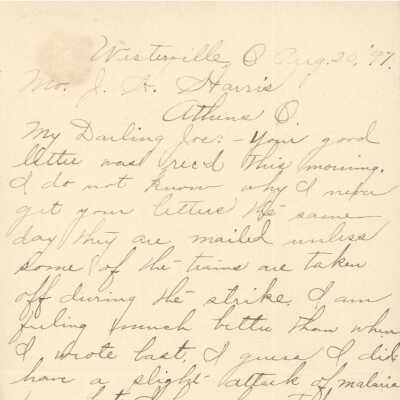 Westerville, O Aug. 20, '97.
Mr. J. H. Harris
Athens O.
My Darling Joe: - Your good
letter was rec'd this morning.
I do not know why I never
get your letters the same
day they are mailed unless
some of the trains are taken
off during the strike. I am
feeling much better than when
I wrote last. I guess I did
have a slight attack of malaria